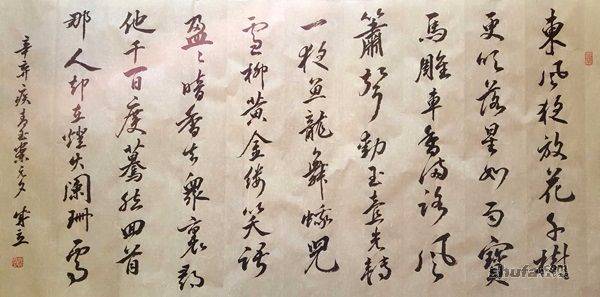 東風夜放花千樹
更吹落星如雨寶
馬雕車香滿路風
簫聲動玉壺光轉
一夜魚龍舞蛾兒
雪柳黃金縷笑語
盈〻暗香去眾裏尋
他千百度驀然回首
那人却在燈火闌珊處
辛弃疾青玉案元夕